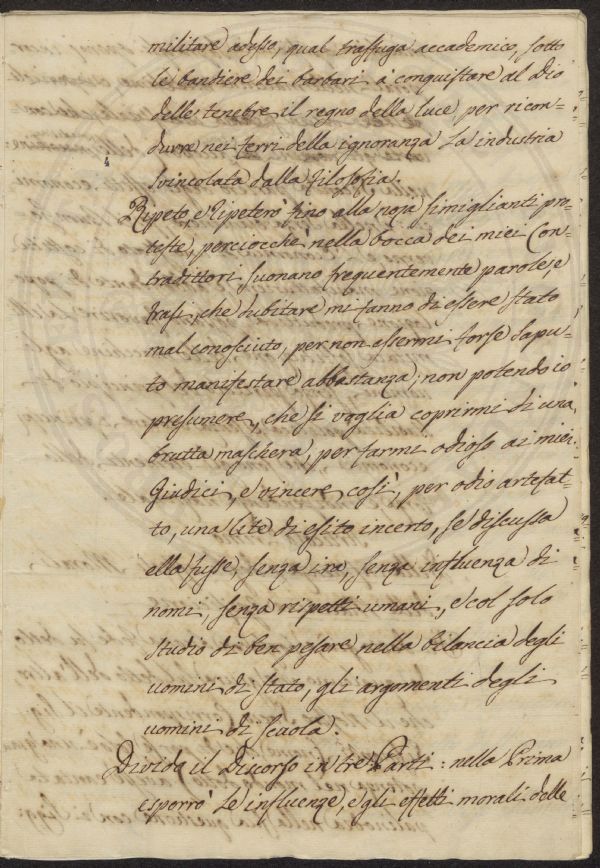 militare adesso, qual trasfuga accademico, sotto
le bandiere dei barbari a conquistare al Dio
delle tenebre il regno della luce per ricon=
durre nei ferri della ignoranza la industria
svincolata dalla filosofia.
Ripeto, e ripeterò fino alla noja simiglianti pro=
teste, perciocchè nella bocca dei miei Con=
tradittori suonano frequentemente parole, e
frasi, che dubitare mi fanno di essere stato
mal conosciuto, per non essermi forse sapu=
to manifestare abbastanza; non potendo io
presumere, che si voglia coprirmi di una
brutta maschera, per farmi odioso ai miei
Giudici, e vincere così, per odio artefat=
to, una lite di esito incerto, se discussa
ella fusse, senza ira, senza influenza di
nomi, senza rispetti umani, e col solo
studio di ben pesare nella bilancia degli
uomini di stato, gli argomenti degli
uomini di scuola.
Divido il Discorso in tre Parti: nella Prima
esporrò le influenze, e gli effetti morali delle